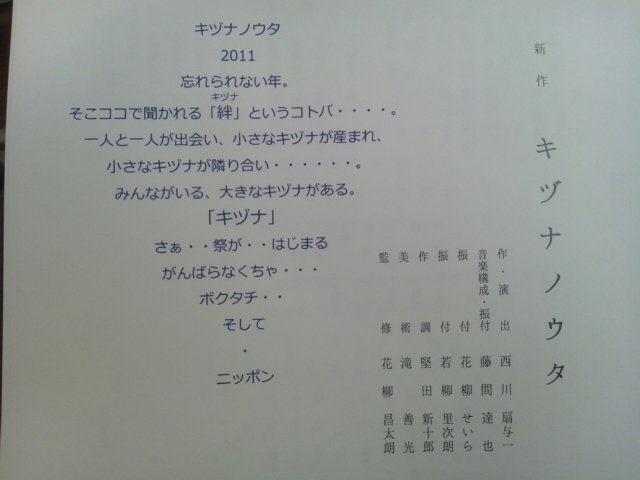 キヅナノウタ
2011
忘れられない年。
キヅナ
そこココで聞かれる「絆」というコトバ・・・・。
一人と一人が出会い、小さなキヅナが産まれ、
小さなキヅナが隣り合い・・・・・・。
みんながいる、大きなキヅナがある。
「キヅナ」
さぁ・・祭が・・はじまる
がんばらなくちゃ・・・
ボクタチ・・
そして
・
ニッポン
新作 キヅナノウタ
作・演出 西川 扇与一
音楽構成・振付 藤間 達也
振付 花柳 せいら
振付 若柳 里次朗
作調 堅田 新十郎
美術 滝 善光
監修 花柳 昌太朗